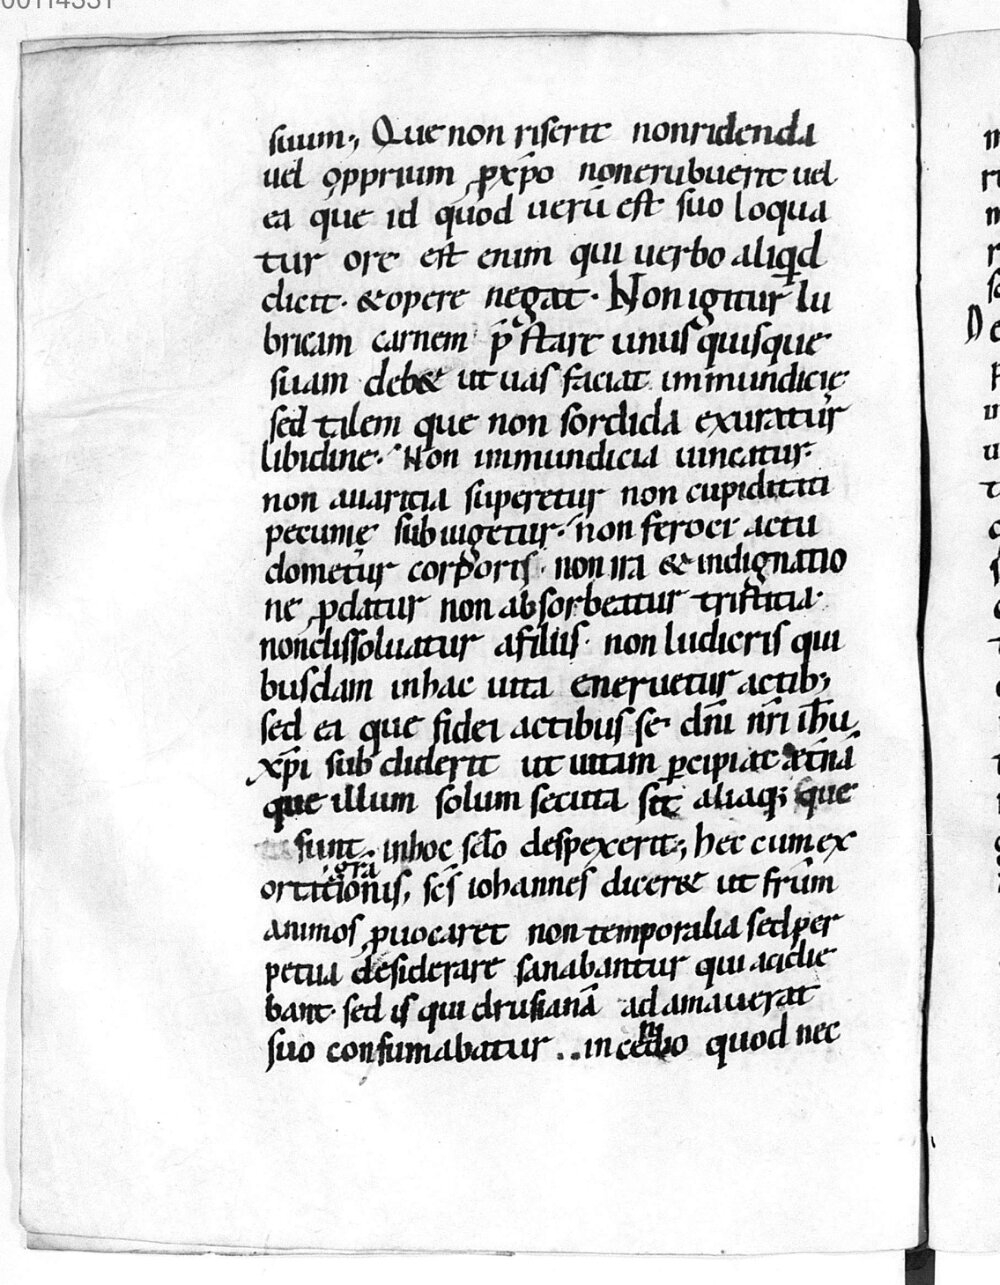 00114331
suum·, Que non riserit nonridenda
uel ꝓpprium ꝓxp̄o nonerubuerit uel
ea que id quod uerū est suo loqua
tur ore est enim qui uerbo aliqd
dicit· &opere negat· Non igitur lu
bricam carnem p̄stare unusquisque
suam deb& ut uas faciat immundicię
sed talem que non sordida exuratur
libidine· Non immundicia uincatur·
non auaricia superetur non cupiditati
pecunię subiugetur· non feroci actu
dometur corporis· non ira & indignatio
ne ꝓdatur non absorbeatur tristicia·
nondissoluatur afiliis· non ludicris qui
busdam inhac uita eneruetur actib;
sed ea que fidei actibus se· dn̄i nr̄i ih̄u
xp̄i subdiderit ut uitam ꝑcipiat æt̄nā
que illum solum secuta sit aliaq; que
sunt inhoc sc̄lo despexerit·, hec cum ex
orta
gra
tionis, sc̄s iohannes dicer& ut fr̄um
animos ꝓuocaret non temporalia sed per
petua desiderare sanabantur qui acidie
bant· sed is qui drusianā adamauerat
suo consumabatur .. in quod nec